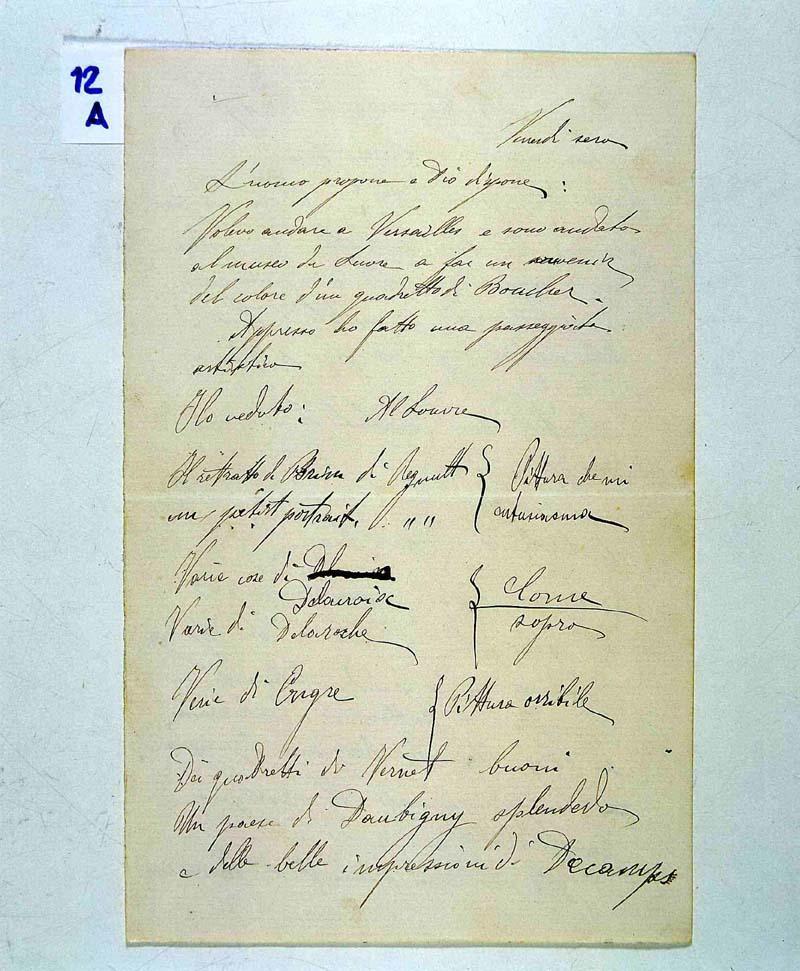 12
A
Venerdì sera
L'uomo propone e Dio dispone:
Volevo andare a Versailles e sono andato
al museo du Luvre a far un souvenir
del colore d'un quadretto di Boucher.
Appresso ho fatto una passeggiata
artistica
Ho veduto: Al Louvre
Il ritratto di Prim di Regnault
un petit portrait, " "
Pittura che mi
entusiasma
Varie cose di
Delacroix
Varie di Delaroche
Come
sopra
Varie di Engre
Pittura orribile
Dei quadretti di Vernet buoni
Un paese di Daubigny splendido
e delle belle impressioni di Decamps